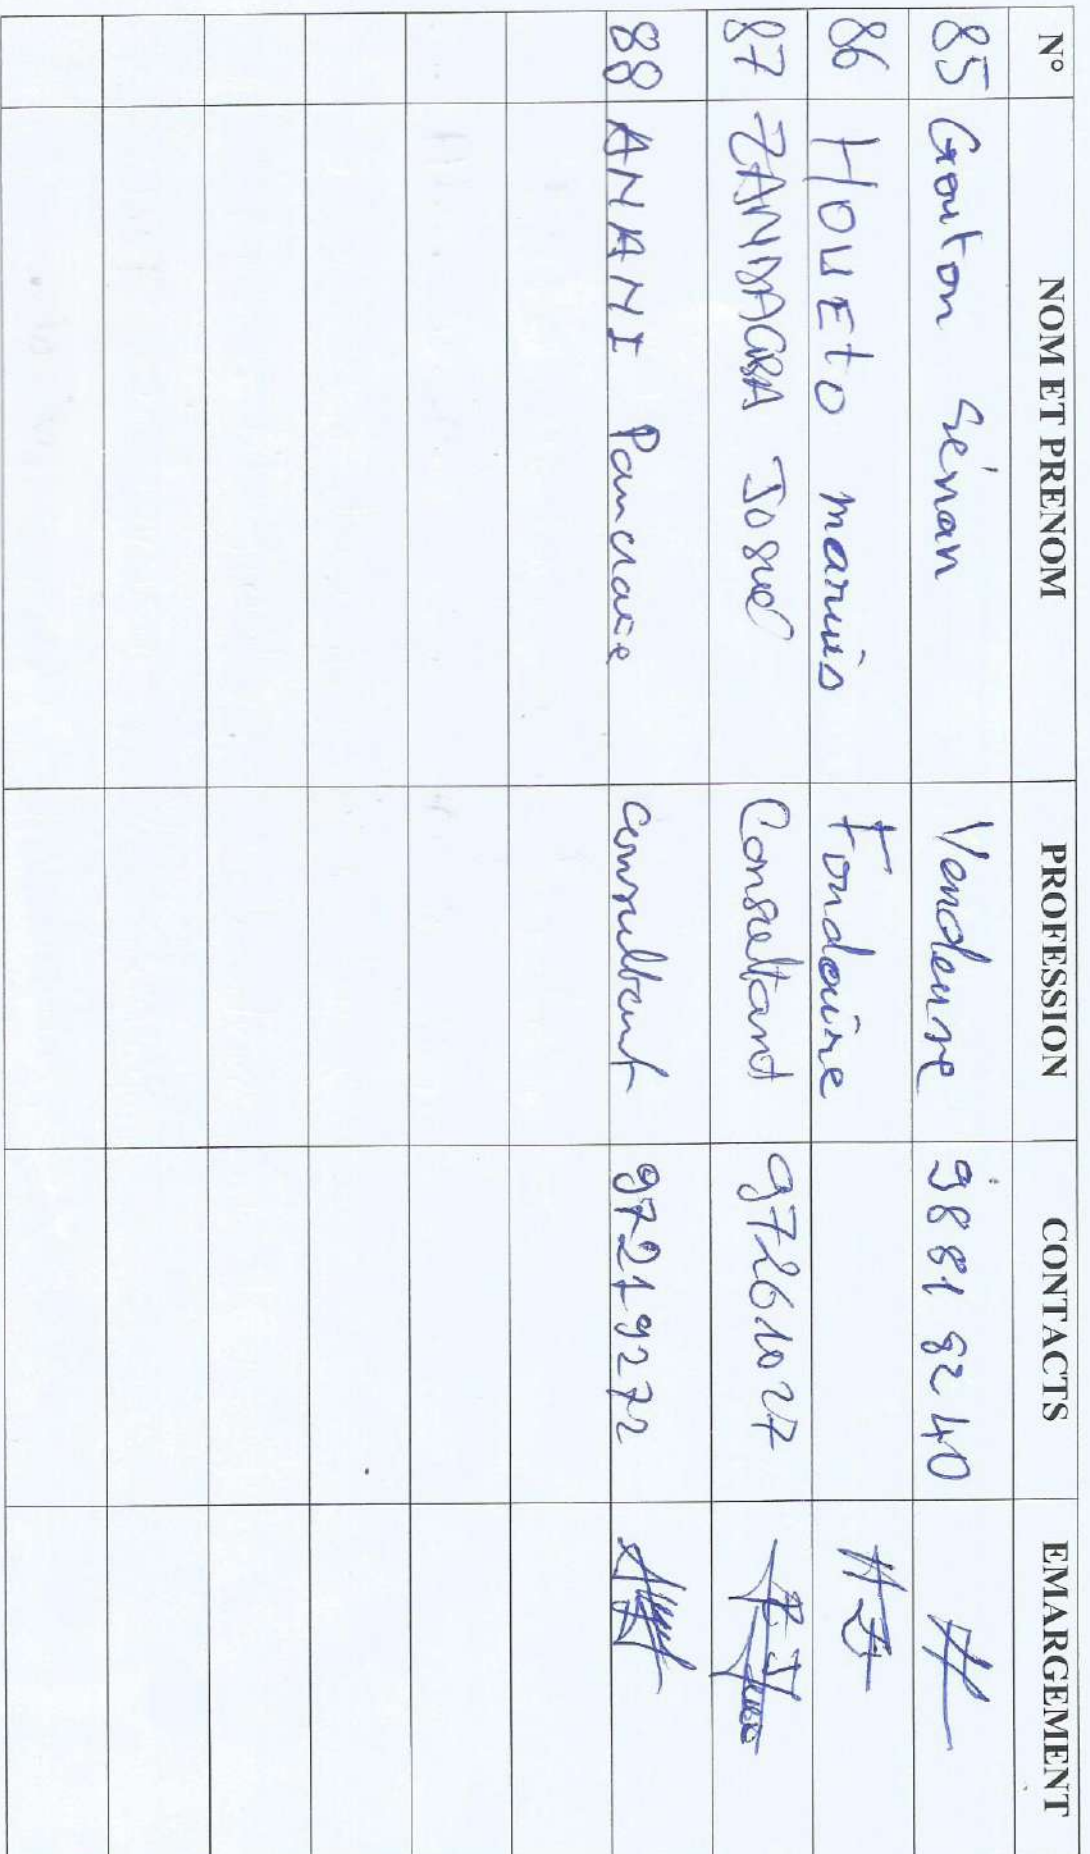 N° NOM ET PRENOM PROFESSION CONTACTS EMARGEMENT
85 Gouton Sénan Vendeuse 98818240
86 HOUETO marius Fondaire
87 ZANDAGBA Josué Consultant 97261027
88 ANANI Pancrace consultant 97219272